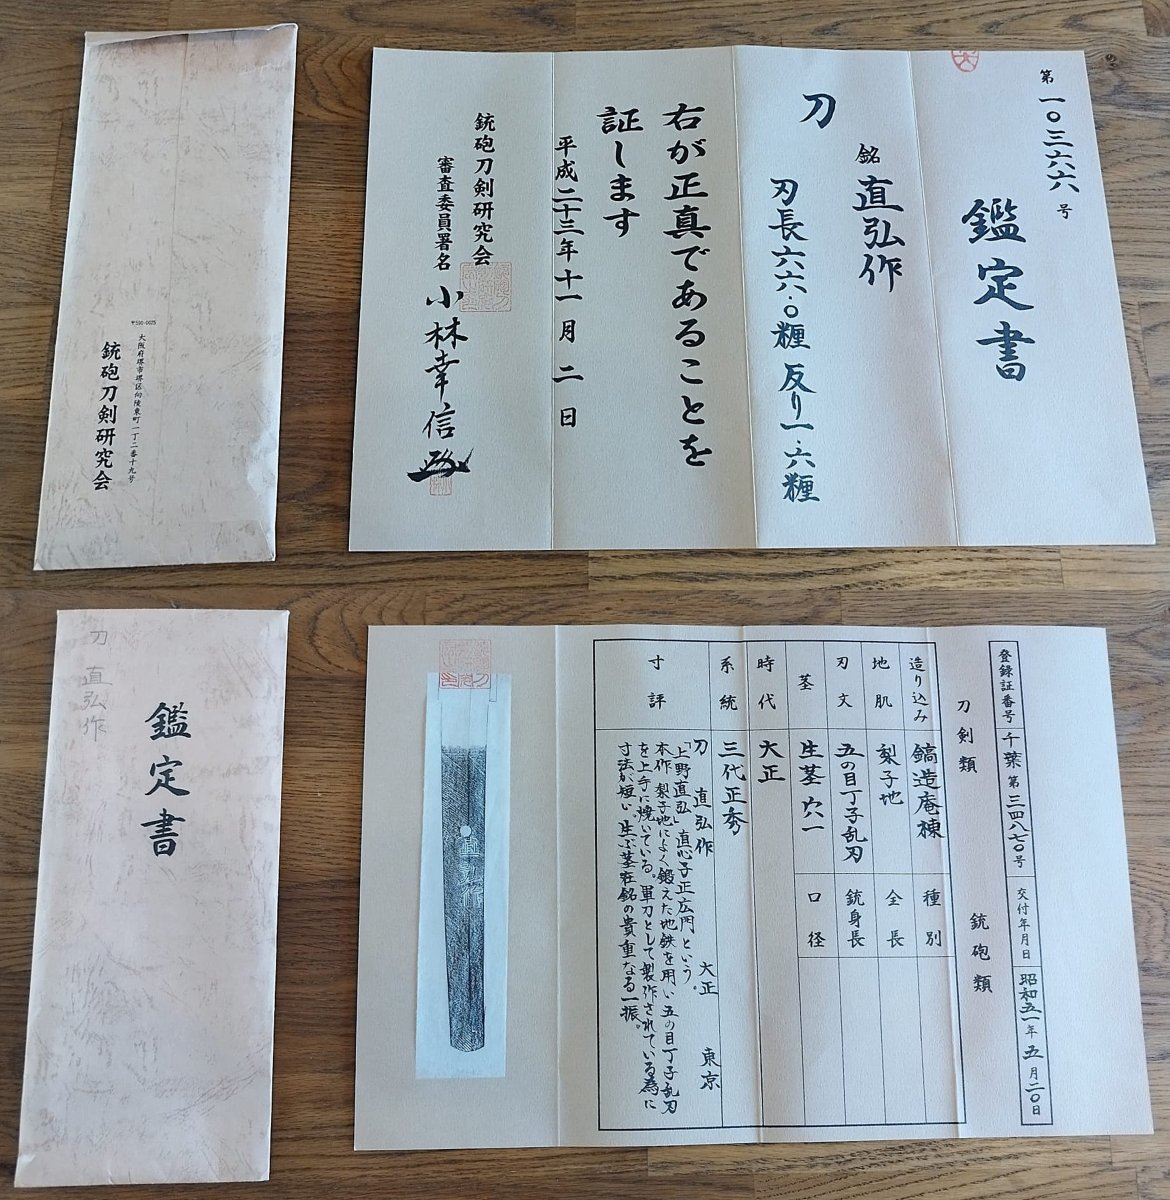 〒590-0025
大阪府堺市堺区向陵東町一丁二番十九号
銃砲刀剣研究会
第一〇三六六号
鑑定書
刀
銘 直弘作
刃長六六.〇糎 反り一.六糎
右が正真であることを
証します
平成二十三年十一月二日
銃砲刀剣研究会
審査委員署名
小林幸信
刀 直弘作
鑑定書
登録証番号 千葉 第三四八七〇号 交付年月日 昭和五一年五月二〇日
刀剣類
銃砲類
造り込み 鎬造庵棟
種別
地肌 梨子地
全長
刃文 五の目丁子乱刃
銃身長
茎 生茎 穴一
口径
時代 大正
系統 三代正秀
寸評
刀 直弘作 大正 東京
「上野直弘」直心子正広門という。
本作 梨子地によく鍛えた地鉄を用い五の目丁子乱刃
を上手に焼いている。軍刀として製作されている為に
寸法が短い。生ぶ茎在銘の貴重なる一振。
直弘作